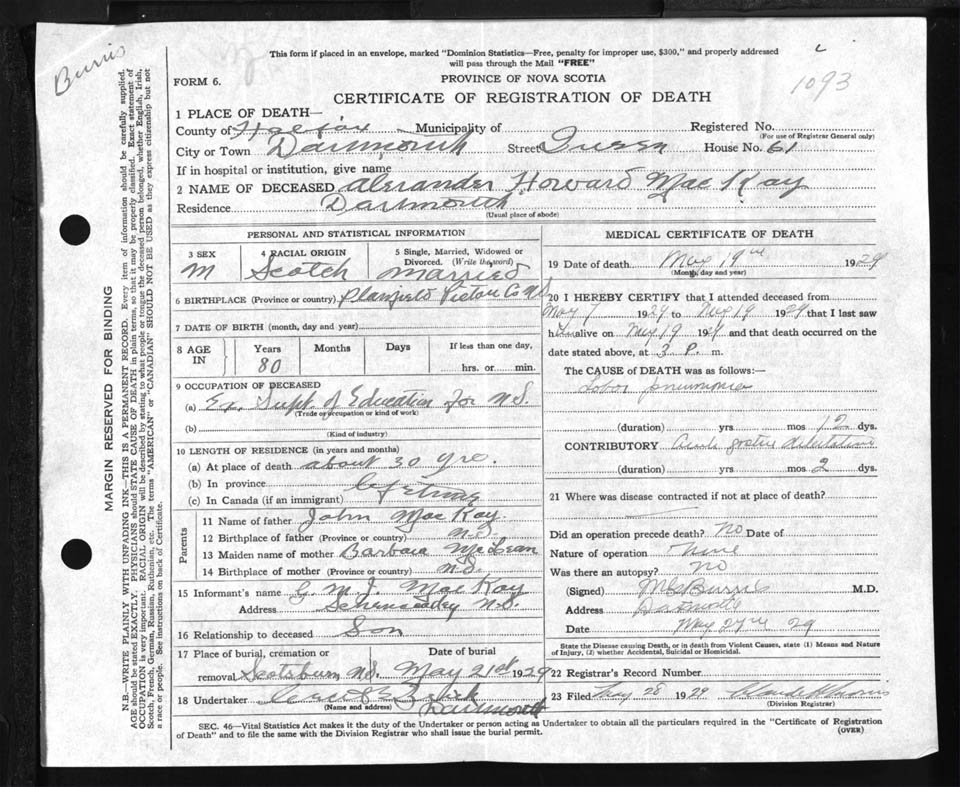 Burris
This form if placed in an envelope, marked "Dominion Statistics—Free, penalty for improper use, $300," and properly addressed
will pass through the Mail "FREE"
1093
FORM 6.
PROVINCE OF NOVA SCOTIA
CERTIFICATE OF REGISTRATION OF DEATH
1 PLACE OF DEATH—
County of Halifax Municipality of Registered No.
(For use of Registrar General only)
City or Town Dartmouth Street Queen House No. 61
If in hospital or institution, give name
2 NAME OF DECEASED Alexander Howard MacKay
Residence Dartmouth
(Usual place of abode)
PERSONAL AND STATISTICAL INFORMATION
3 SEX 4 RACIAL ORIGIN 5 Single, Married, Widowed or
Divorced. (Write the word)
M Scotch married
6 BIRTHPLACE (Province or country) Plainfield Pictou Co N.S
7 DATE OF BIRTH (month, day and year)
8 AGE IN Years Months Days If less than one day,
80 hrs. or min.
9 OCCUPATION OF DECEASED
(a) Ex. Supt. of Education for N.S.
(Trade or occupation or kind of work)
(b)
(Kind of industry)
10 LENGTH OF RESIDENCE (in years and months)
(a) At place of death about 30 yrs.
(b) In province
(c) In Canada (if an immigrant) lifetime
Parents
11 Name of father John MacKay.
12 Birthplace of father (Province or country) N.S.
13 Maiden name of mother Barbara McLean
14 Birthplace of mother (Province or country) N.S.
15 Informant's name G. M. J. MacKay
Address N.S.
16 Relationship to deceased Son
17 Place of burial, cremation or Date of burial
removal Scotsburn N.S. May 21st 1929
18 Undertaker
(Name and address) Dartmouth
MEDICAL CERTIFICATE OF DEATH
19 Date of death May 19th 1929
(Month, day and year)
20 I HEREBY CERTIFY that I attended deceased from
May 7 1929 to May 19 1929 that I last saw
him alive on May 19 1929 and that death occurred on
date stated above, at 3 P. m.
The CAUSE of DEATH was as follows:—
Lobar pneumonia
(duration) yrs mos 12 dys.
CONTRIBUTORY Acute gastric dilatation
(duration) yrs mos 2 dys.
21 Where was disease contracted if not at place of death?
Did an operation precede death? No Date of
Nature of operation None
Was there an autopsy? No
(Signed) Burris M.D.
Address Dartmouth
Date May 27th 29
State the Disease causing Death, or in death from Violent Causes, state (1) Means and Nature
of Injury, (2) whether Accidental, Suicidal or Homicidal.
22 Registrar's Record Number
23 Filed May 28 1929
(Division Registrar)
SEC. 46—Vital Statistics Act makes it the duty of the Undertaker or person acting as Undertaker to obtain all the particulars required in the "Certificate of Registration
of Death" and to file the same with the Division Registrar who shall issue the burial permit.
(OVER)
MARGIN RESERVED FOR BINDING
N.B.—WRITE PLAINLY WITH UNFADING INK—THIS IS A PERMANENT RECORD. Every item of information should be carefully supplied.
AGE should be stated EXACTLY. PHYSICIANS should STATE CAUSE OF DEATH in plain terms, so that it may be properly classified. Exact statement of
OCCUPATION is very important. RACIAL ORIGIN will be described by stating to what people or tongue the deceased person belonged, whether English, Irish,
Scotch, French, German, Russian, Ruthenian, etc. The terms "AMERICAN" or "CANADIAN" SHOULD NOT BE USED as they express citizenship but not
a race or people. See instructions on back of Certificate.